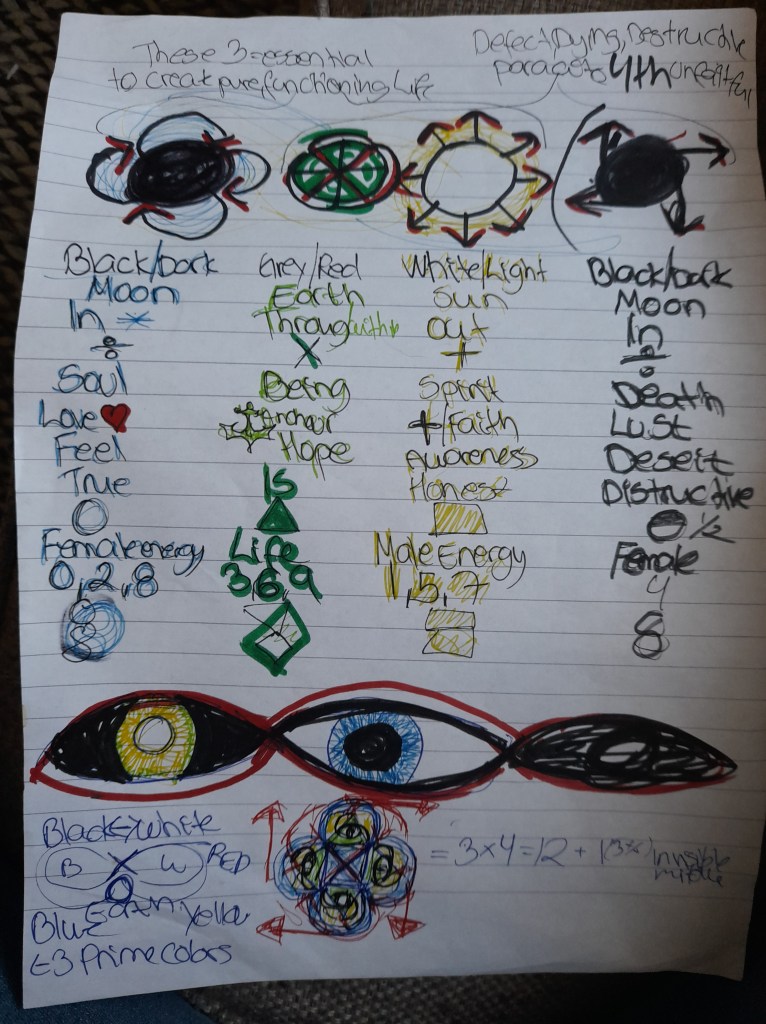 These 3=essential
to creat pure, functioning Life
Defect, Dying, Destructive
4th
Black/Dark
Moon
In *
÷
Soul
Love
Feel
True
Female energy
0,2,8
8
Grey/Red
Earth
Through
X
Being
Anchour
Hope
Is
Life
3,6,9
White/Light
Sun
Out
+
Spirit
+/Faith
Awareness
Honest
Male Energy
1,5,7
Black/Dark
Moon
In
÷
Death
Lust
Deseit
Distructive
1/2
Female
4
8
Black White
B X W RED
Earth
Blue Yellow
3 Prime Colors
= 3x4=12 + 1
invisible